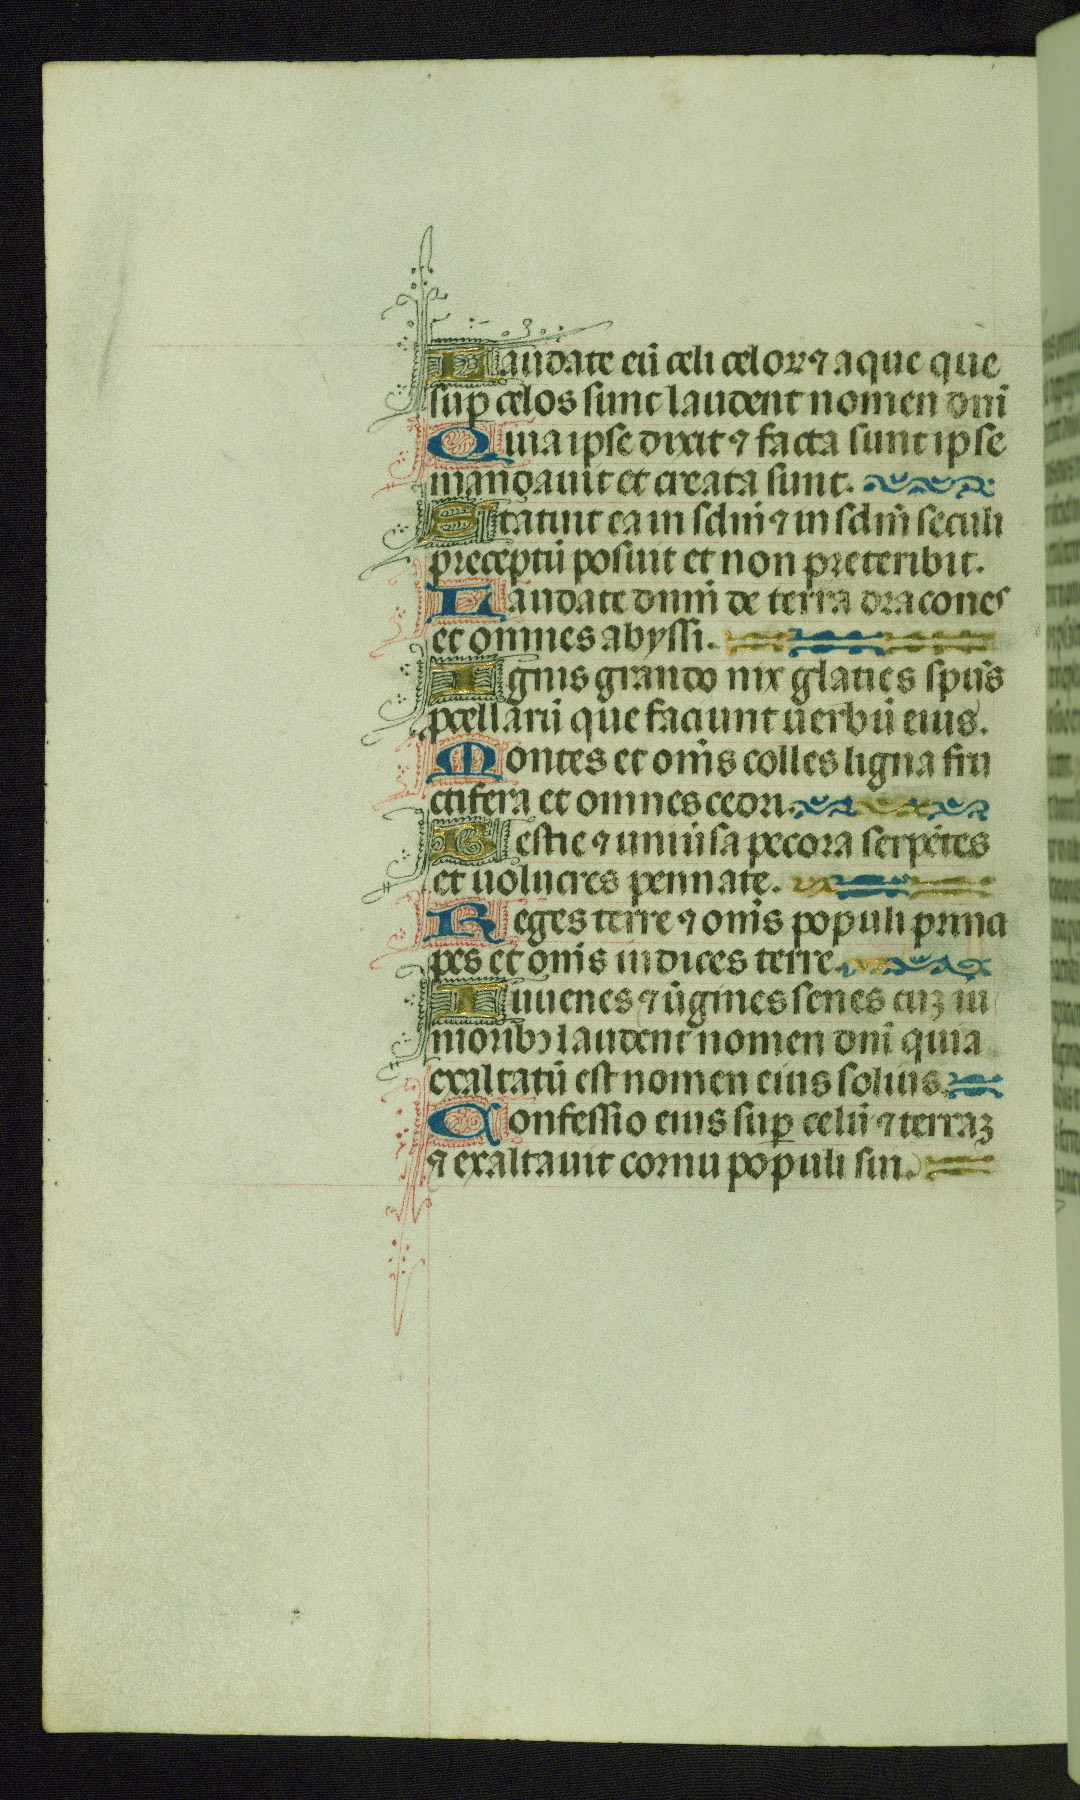 Laudate eū celi celoꝝ ⁊ aque que
suꝑ celos sunt laudent nomen dn̄i
Quia ipse dixit ⁊ facta sunt ipse
mandauit et creata sunt.
Statuit ea in sc̄lm̄ ⁊ in sc̄lm̄ seculi
preceptū posuit et non preteribit.
Laudate dnm̄ de terra dracones
et omnes abyssi.
Ignis grando nix glaties sp̄us
ꝓcellarū que faciunt uerbū eius.
Montes et om̄s colles ligna fru
ctifera et omnes cedri.
Bestie ⁊ uniūsa pecora serpētes
et uolucres pennate.
Reges terre ⁊ om̄s populi princi
pes et om̄s iudices terre.
Iuuenes ⁊ ūgines senes cuꝫ iu
nioribꝰ laudent nomen dn̄i quia
exaltatū est nomen eius solius.
Confessio eius suꝑ celū ⁊ terraꝫ
⁊ exaltauit cornu populi sui.